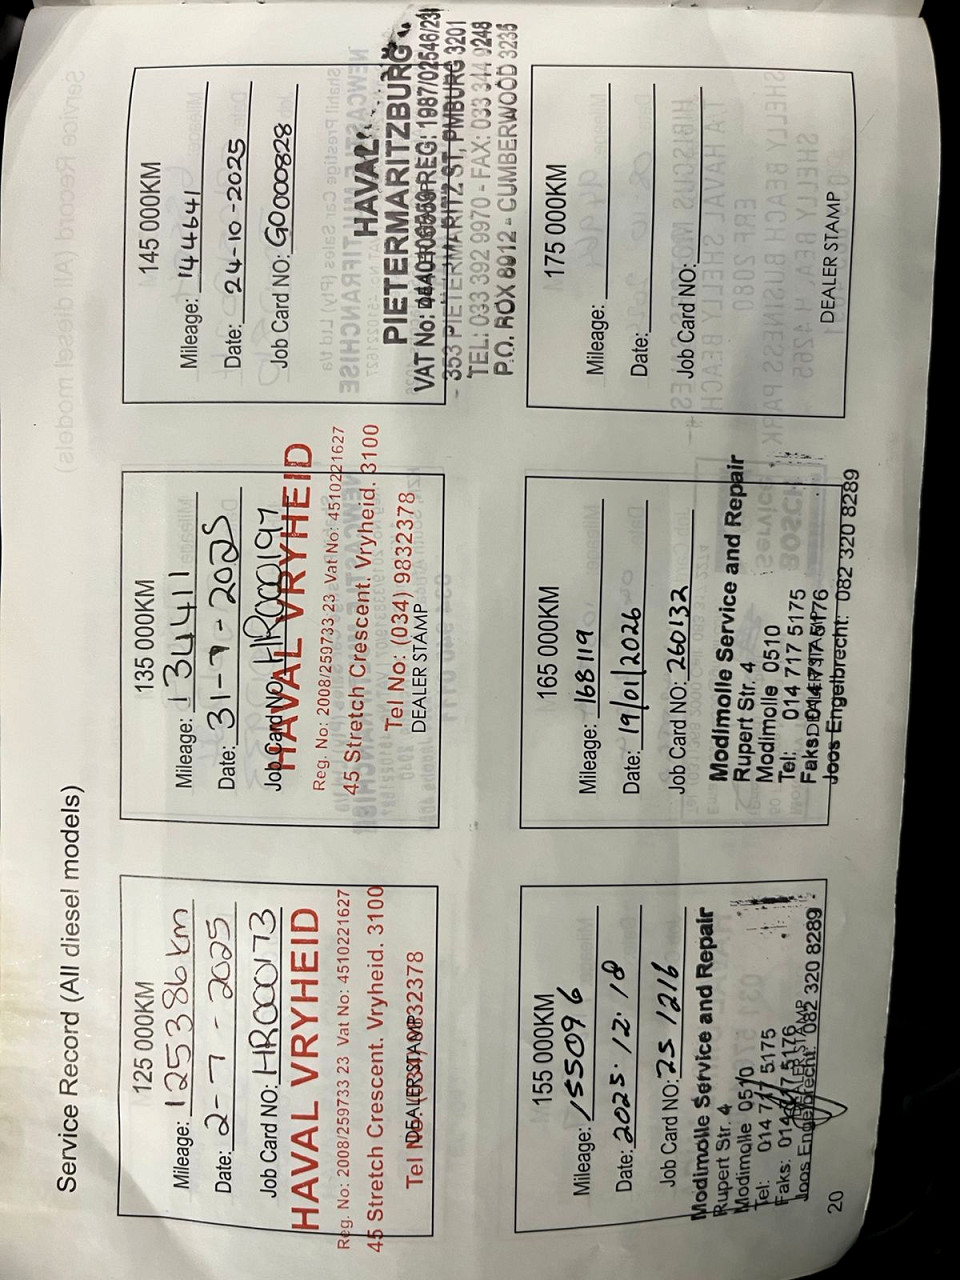 Service Record (All diesel models)
125 000KM
Mileage: 125386km
Date: 2-7-2025
Job Card NO: HR000173
HAVAL VRYHEID
Reg. No: 2008/259733 23 Vat No: 4510221627
45 Stretch Crescent. Vryheid. 3100
DEALER STAMP
135 000KM
Mileage: 13441 1
Date: 31-7-2025
Job Card NO: HR000197
HAVAL VRYHEID
Reg. No: 2008/259733 23 Vat No: 4510221627
45 Stretch Crescent. Vryheid. 3100
Tel No: (034) 9832378
DEALER STAMP
145 000KM
Mileage: 144641
Date: 24-10-2025
Job Card NO: GO000828
HAVAL
PIETERMARITZBURG
VAT No: REG: 1987/02546/23
353 PIETERMARITZ ST, PMBURG 3201
TEL: 033 392 9970 - FAX: 033 344 9248
P.O. BOX 8012 - CUMBERWOOD 3235
155 000KM
Mileage: 155096
Date: 2025.12.18
Job Card NO: 25 1216
Modimolle Service and Repair
Rupert Str. 4
Modimolle 0510
Tel: 014 717 5175
Faks: 014 717 5176
DEALER STAMP
Joos Engelbrecht: 082 320 8289
165 000KM
Mileage: 168119
Date: 19/01/2026
Job Card NO: 260132
Modimolle Service and Repair
Rupert Str. 4
Modimolle 0510
Tel: 014 717 5175
Faks: 014 717 5176
DEALER STAMP
Joos Engelbrecht: 082 320 8289
175 000KM
Mileage:
Date:
Job Card NO:
DEALER STAMP
20